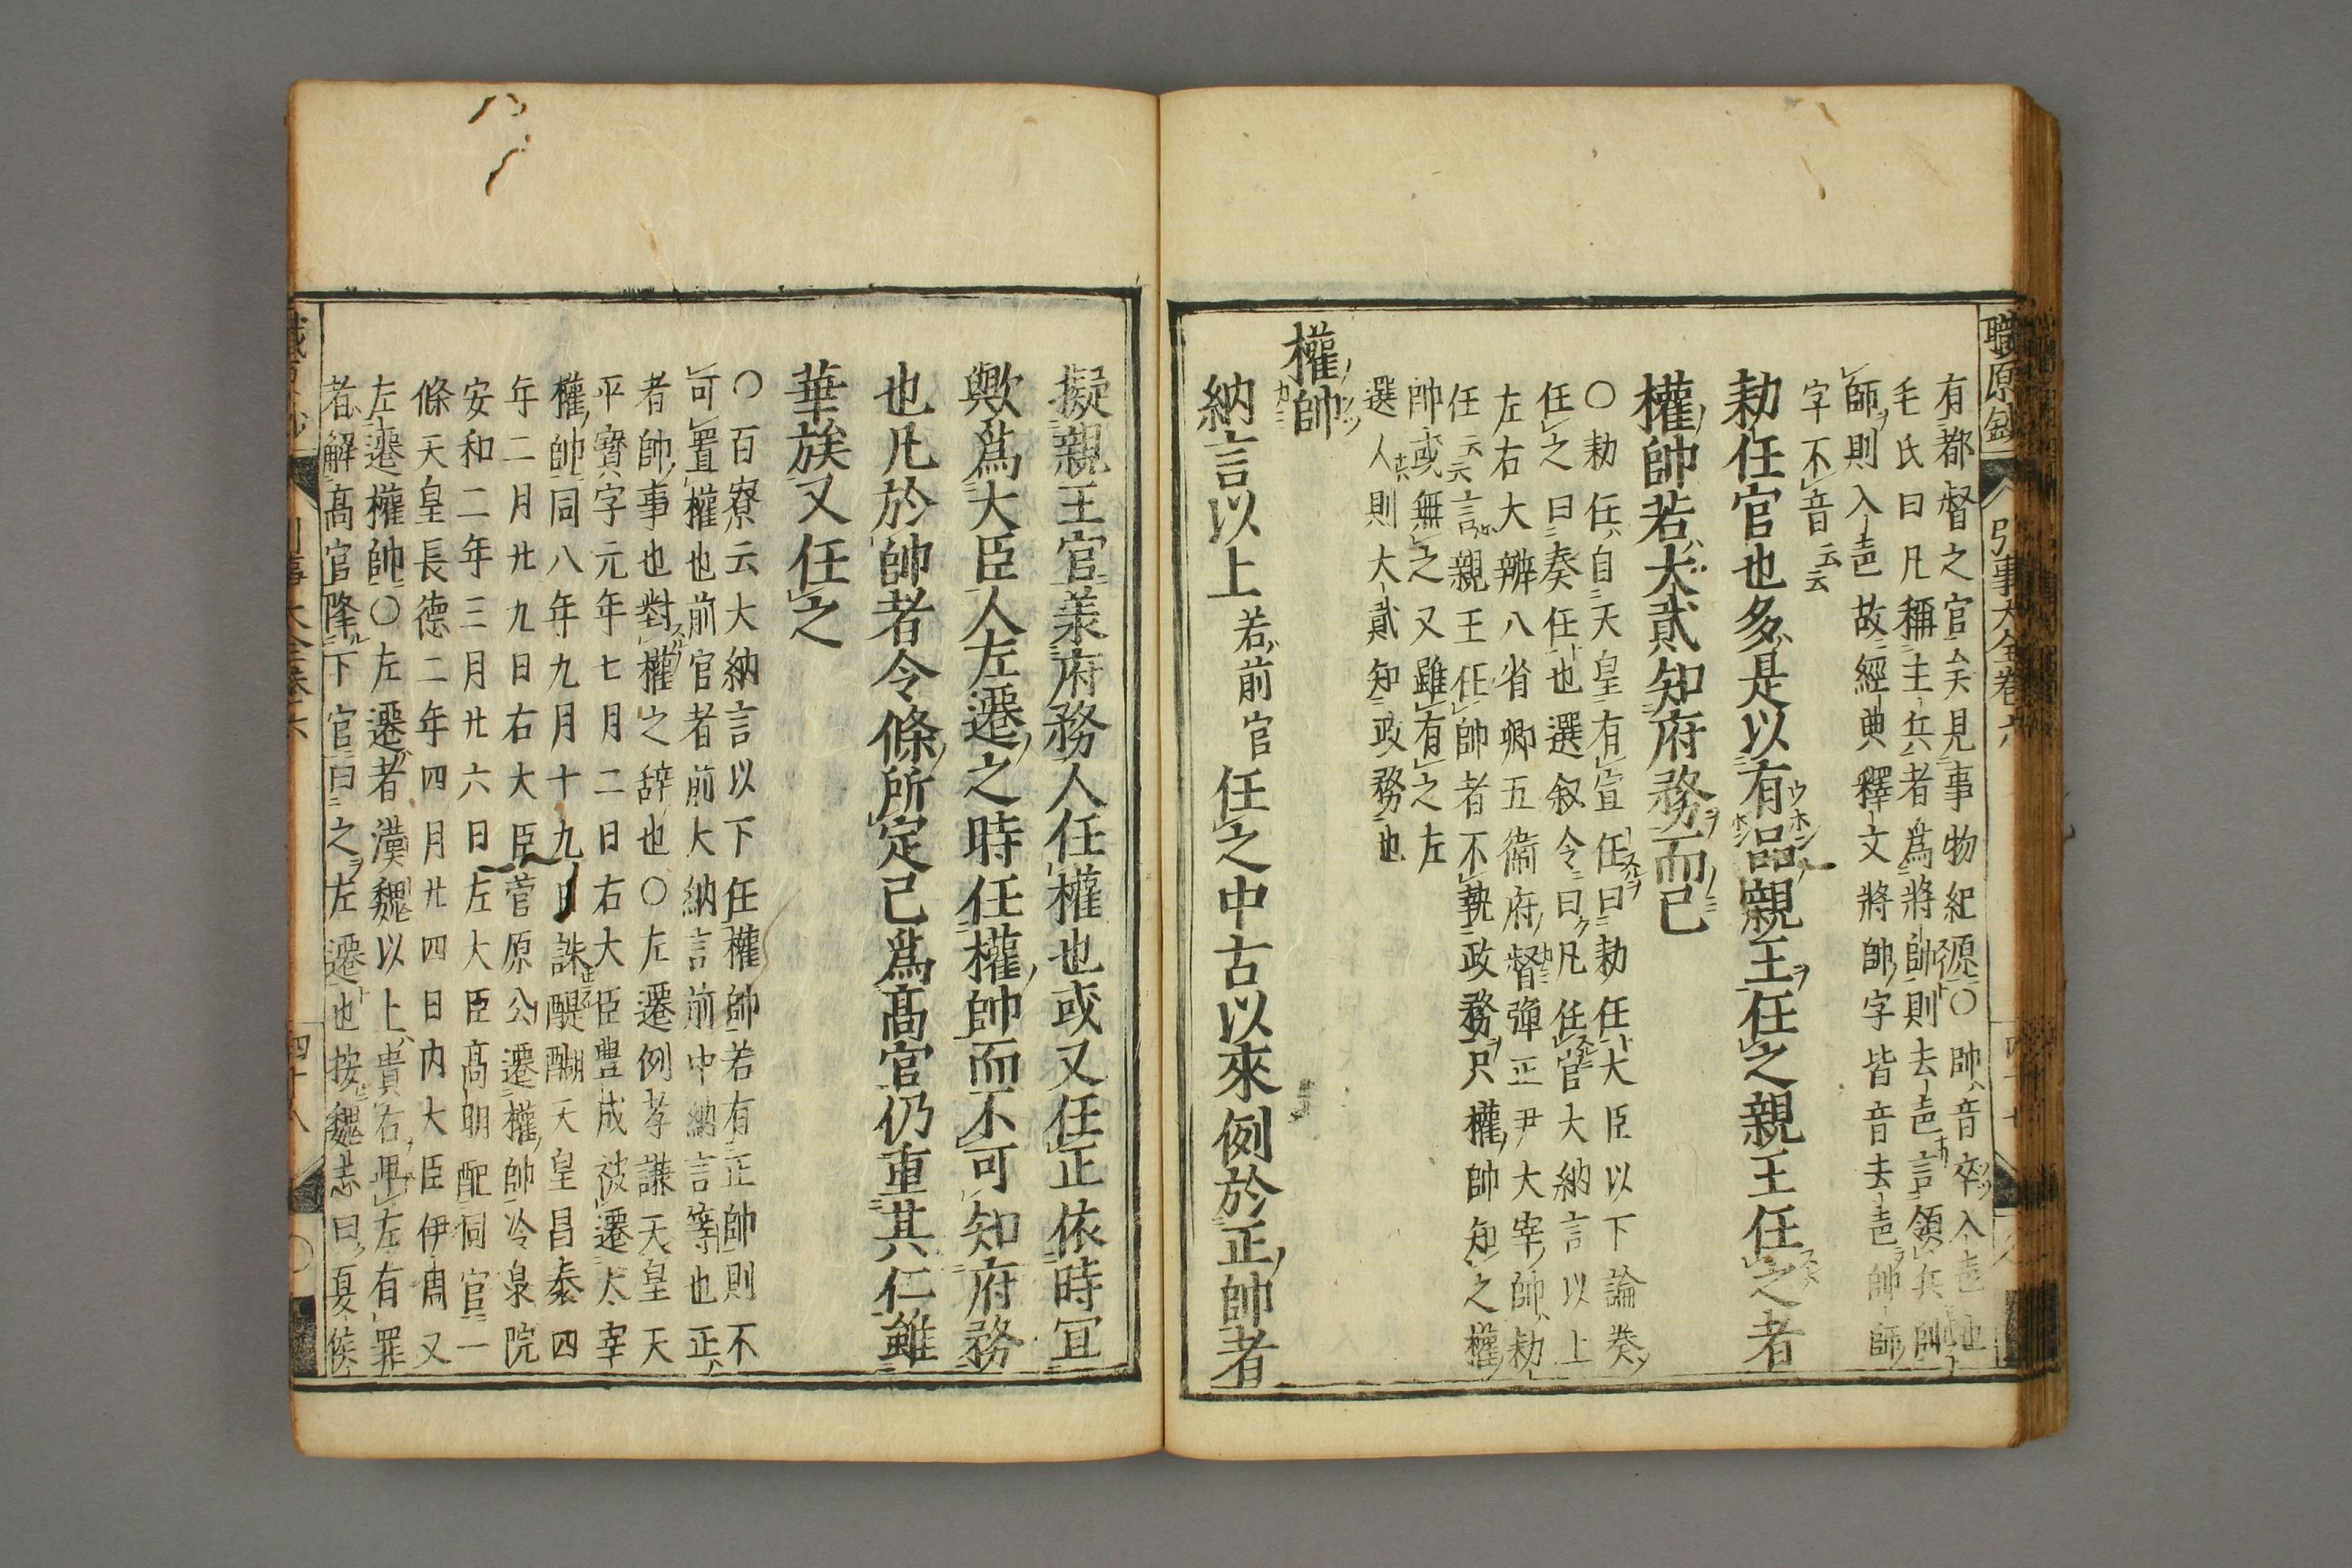 職原鈔 引事大全卷六
有都督之官矣見事物紀原○帥音卒入聲也
毛氏曰凡稱主兵者爲將帥則去聲言領兵帥
師則入聲故經典釋文將帥字皆音去聲帥師
字不音云云
勅任官也多是以有品親王任之親王任之者
權帥若大貳知府務而已
○勅任自天皇有宣任曰勅任大臣以下論奏
任之曰奏任也選叙令曰凡任官大納言以上
左右大辨八省卿五衞府督彈正尹大宰帥勅
任云云言親王任帥者不執政務只權帥知之權
帥或無之又雖有之左
選人則大貳知政務也
權帥
納言以上若前官任之中古以來例於正帥者
擬親王官兼府務人任權也或又任正依時宜
歟爲大臣人左遷之時任權帥而不可知府務
也凡於帥者令條所定已爲高官仍重其仁雖
華族又任之
○百寮云大納言以下任權帥若有正帥則不
可置權也前官者前大納言前中納言等也正
者帥事也對權之辞也○左遷例孝謙天皇天
平寶字元年七月二日右大臣豊成被遷大宰
權帥同八年九月十九日誅醍醐天皇昌泰四
年二月廿九日右大臣菅原公遷權帥冷泉院
安和二年三月廿六日左大臣高明配同官一
條天皇長德二年四月廿四日内大臣伊周又
左遷權帥○左遷者漢魏以上貴右卑左有罪
者解高官降下官曰之左遷也按魏志曰夏侯